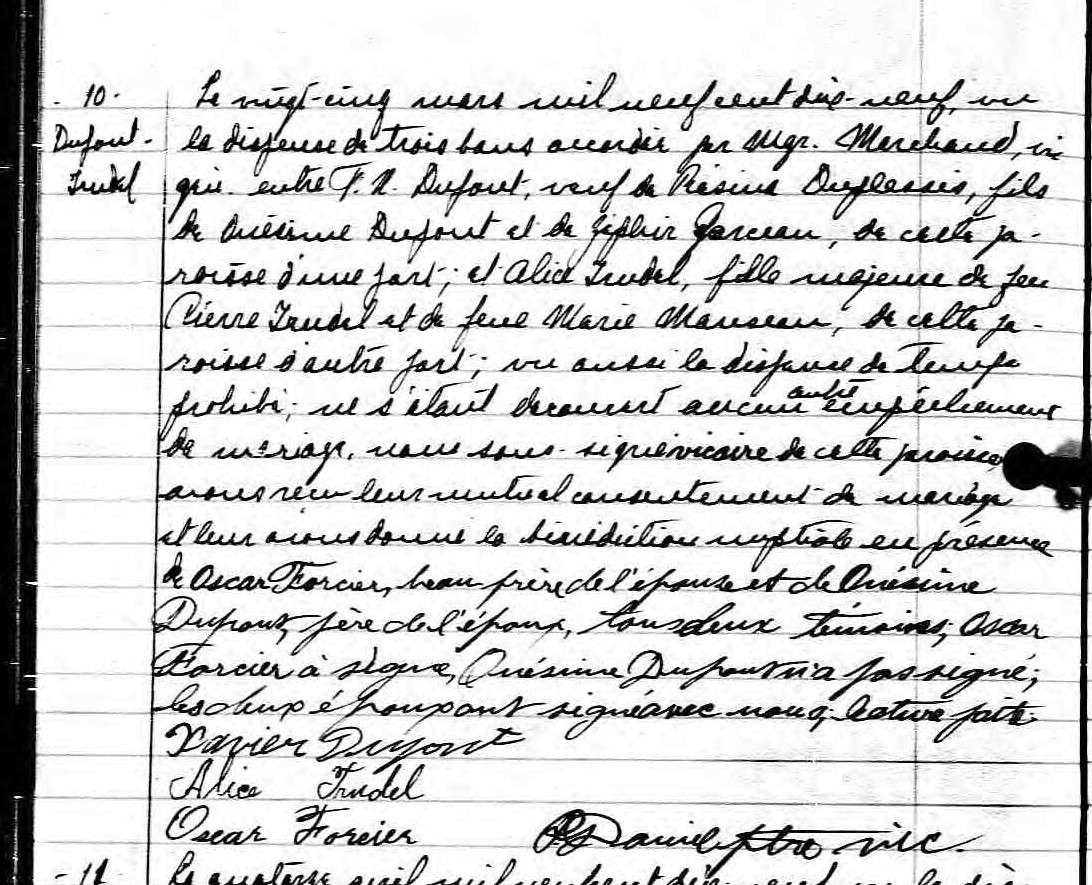 - 10 -
Dufont -
Trudel
Le vingt-cinq mars mil neuf cent dix-neuf, vu
la dispense de trois bans accordée par Mgr. Marchand, vi
entre F. X. Dupont, veuf de Rosina Duplessis, fils
de Onésime Dupont et de Zéphir Garceau, de cette pa-
roisse d'une part; et Alice Trudel, fille majeure de feu
Pierre Trudel et de feue Marie Manseau, de cette pa-
roisse d'autre part; vu aussi la dispense de temps
prohibé; ne s'étant découvert aucun autre empêchement
de mariage, nous sous-signé vicaire de cette paroisse
avons reçu leur mutuel consentement de mariage
et leur avons donné la bénédiction nuptiale en présence
de Oscar Forcier, beau frère de l'épouse et de Onésime
Dupont, père de l'époux, tous deux témoins; Oscar
Forcier à signé, Onésime Dupont n'a pas signé;
les deux époux ont signé avec nous; lecture faite
Xavier Dupont
Alice Trudel
Oscar Forcier Daniel ptre vic.
- 11
Le quatorze avril mil neuf cent dix-neuf, vu la dis